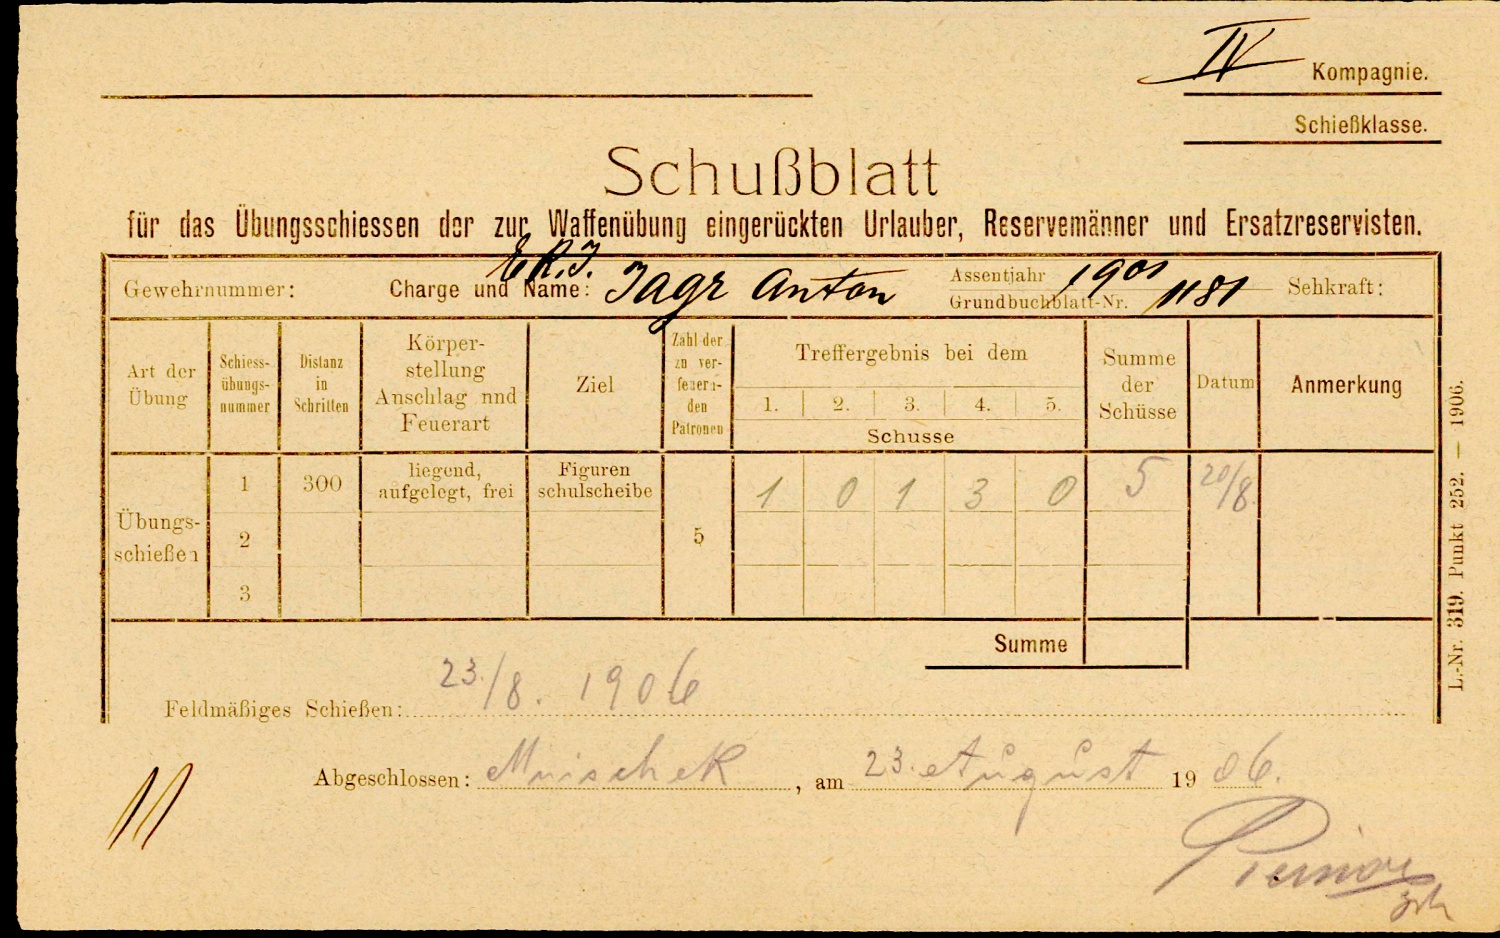 IV Kompagnie.
Schießklasse.
Schußblatt
für das Übungsschiessen der zur Waffenübung eingerückten Urlauber, Reservemänner und Ersatzreservisten.
Gewehrnummer: Charge und Name: E.R.I. Jagr Anton Assentjahr 1901 Sehkraft:
Grundbuchblatt-Nr. 1181
Art der Übung Schiess-übungs-nummer Distanz in Schritten Körper-stellung Anschlag nnd Feuerart Ziel Zahl der zu ver-feuern-den Patronen Treffergebnis bei dem Summe der Schüsse Datum Anmerkung
1. 2. 3. 4. 5.
Schusse
Übungs-schießen 1 300 liegend, aufgelegt, frei Figuren schulscheibe 5 1 0 1 3 0 5 20/8.
2
3
Summe
Feldmäßiges Schießen: 23./8. 1906
Abgeschlossen: Mnischek, am 23. August 1906.
L.-Nr. 319. Punkt 252. — 1906.